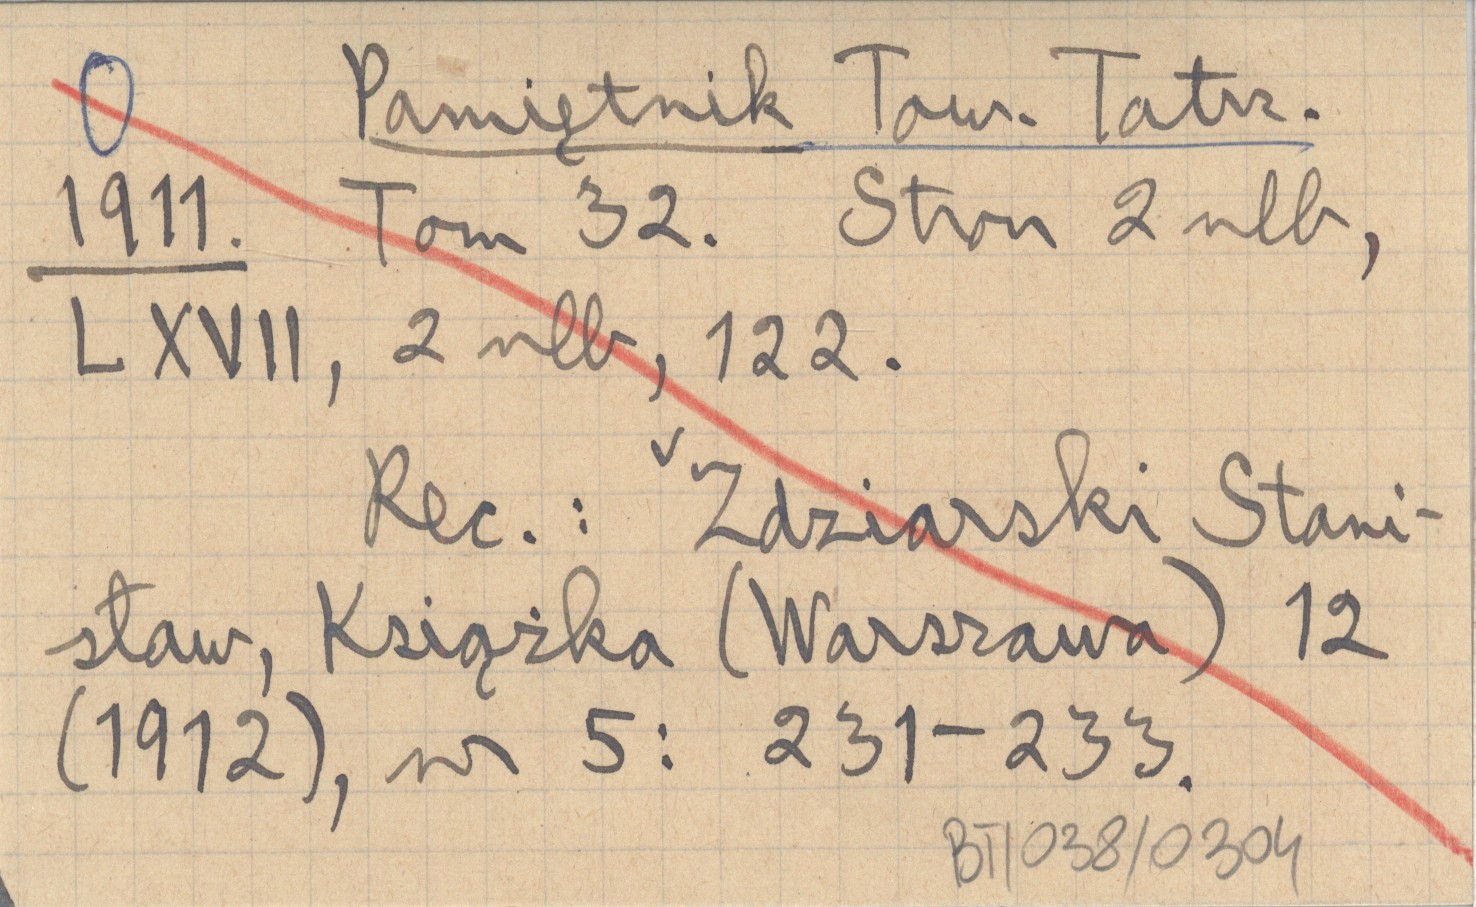 0 Pamiętnik Tow. Tatrz.
1911. Tom 32. Stron 2 nlb,
LXVII, 2 nlb, 122.
Rec.: Zdziarski Stani-
sław, Książka (Warszawa) 12
(1912), nr 5: 231-233.
BT/038/0304